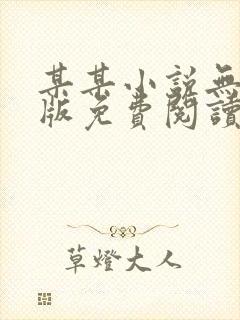 某某小説無
版免費閱讀
草燈大人